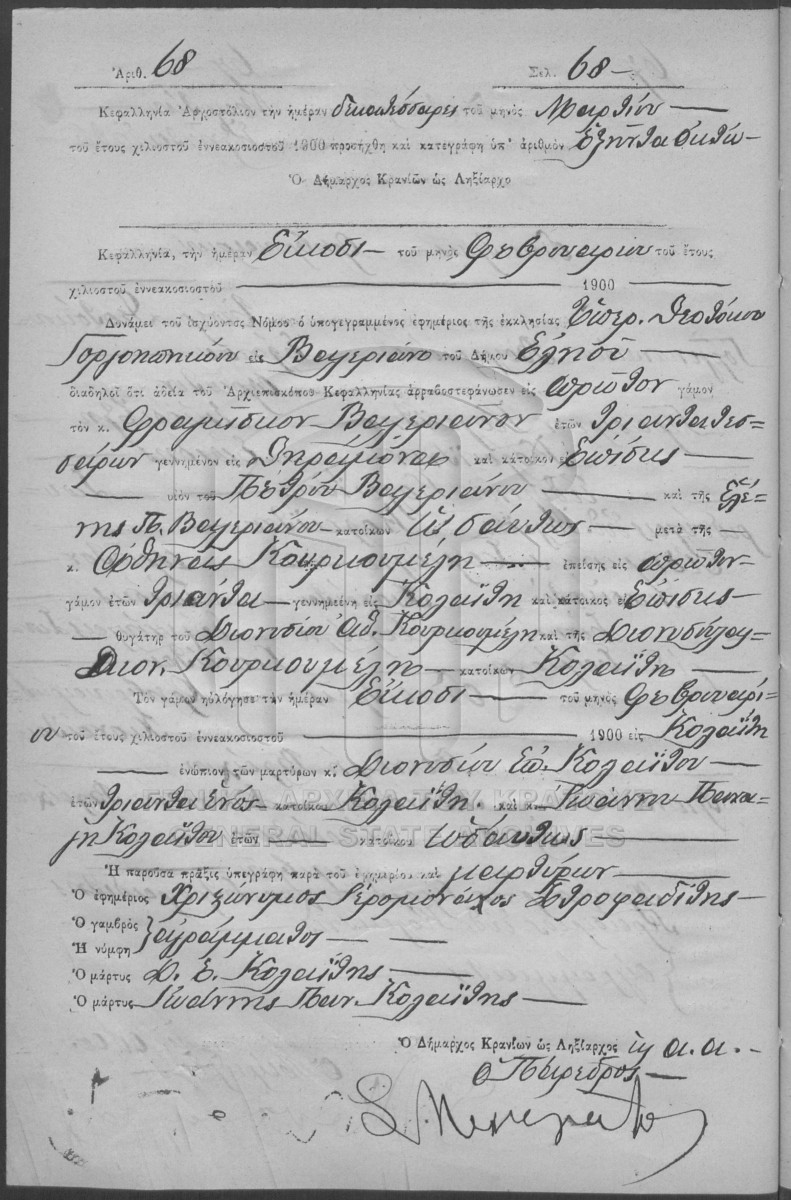 Ἀριθ. 68 Σελ. 68
Κεφαλληνία Ἀργοστόλιον τὴν ἡμέραν δεκατέσσαρες τοῦ μηνὸς Μαρτίου
τοῦ ἔτους χιλιοστοῦ ἐννεακοσιοστοῦ 1900 προσήχθη καὶ κατεγράφη ὑπ' ἀριθμὸν ἑξῆντα ὀκτώ
Ὁ Δήμαρχος Κρανίων ὡς Ληξίαρχο
Κεφαλληνία, τὴν ἡμέραν Εἴκοσι τοῦ μηνὸς Φεβρουαρίου τοῦ ἔτους
χιλιοστοῦ ἐννεακοσιοστοῦ 1900
Δυνάμει τοῦ ἰσχύοντος Νόμου ὁ ὑπογεγραμμένος ἐφημέριος τῆς ἐκκλησίας Ὑπερ. Θεοτόκου
εἰς Βαλεριάνο τοῦ Δήμου
διαδηλοῖ ὅτι ἀδεία τοῦ Ἀρχιεπισκόπου Κεφαλληνίας ἀρραβοστεφάνωσεν εἰς πρῶτον γάμον
τὸν κ. Φραγκῖσκον Βαλεριάνον ἐτῶν τριάντα τεσ-
σάρων γεννημένον εἰς καὶ κάτοικον ἐπίσης
υἱὸν τοῦ Πέτρου Βαλεριάνου καὶ τῆς Ἑλέ-
νης Π. Βαλεριάνου κατοίκων ὡσαύτως μετὰ τῆς
κ. Ἀθηναΐς Κουρκουμέλη ἐπείσης εἰς πρῶτον
γάμον ἐτῶν τριάντα γεννημεένη εἰς Κολαΐτη καὶ κάτοικος εἰ ἐπίσης
θυγάτηρ τοῦ Διονυσίου Ἀθ. Κουρκουμέλη καὶ τῆς Διονυσούλας
Διον. Κουρκουμέλη κατοίκων Κολαΐτη
Τὸν γάμων ηὐλόγησε τὴν ἡμέραν Εἴκοσι τοῦ μηνὸς Φεβρουαρί-
ου τοῦ ἔτους χιλιοστοῦ ἐννεακοσιοστοῦ 1900 εἰς Κολαΐτη
ἐνώπιον τῶν μαρτύρων κ. Διονυσίου Κολαΐτου
ἐτῶν τριάντα ἑνός κατοίκου Κολαΐτη. καὶ κ. Ἰωάννου Πανα-
γῆ Κολαΐτου ἐτῶν κατοίκου ὡσαύτως
ΓΕΝΙΚΑ ΑΡΧΕΙΑ ΤΟΥ ΚΡΑΤΟΥΣ
GENERAL STATE ARCHIVES
Ἡ παροῦσα πρᾶξις ὑπεγράφη παρὰ τοῦ ἐφημερίου καὶ μαρτύρων
Ὁ ἐφημέριος Ἱερομόναχος Στροφαδίτης
Ὁ γαμβρὸς
Ἡ νύμφη } ἀγράμματοι
Ὁ μάρτυς Δ. Ε. Κολαΐτης
Ὁ μάρτυς Ἰωάννης Παν. Κολαΐτης
Ὁ Δήμαρχος Κρανίων ὡς Ληξίαρχος α.α.
Ὁ Πάρεδρος